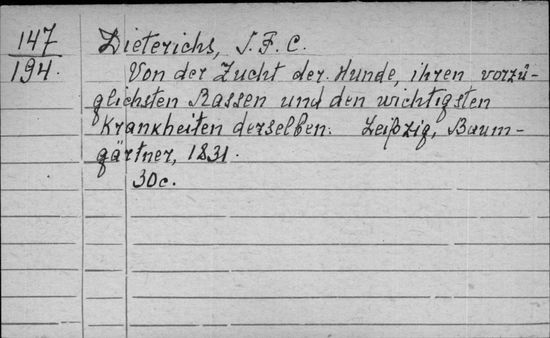 147
194.
Dieterichs, J. F. C.
Von der Zucht der Hunde, ihren vorzü-
glichsten Rassen und den wichtigsten
Krankheiten derselben. Leipzig, Baum-
gärtner, 1831.
30c.